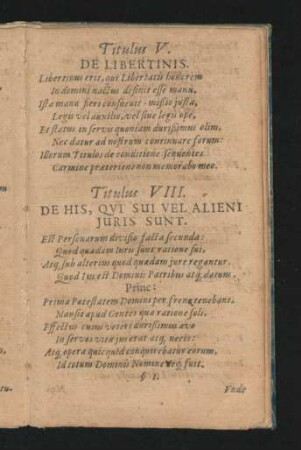 Titulus V.
DE LIBERTINIS.
Libertinus erit, qui Libertatis honorem
In domini nactus desinit esse manu,
Ista manu fieri consuevit missio justa,
Legis vel auxilio, vel sine legis ope,
Et status in servis quoniam durissimus olim,
Nec datur ad nostrum continuare forum:
Illorum Titulos de conditione sequentes
Carmine praeteriens non memorabo meo.
Titulus VIII.
DE HIS, QVI SUI VEL ALIENI
JURIS SUNT.
Est Personarum divisio facta secunda:
Quod quaedam Juris sunt ratione sui,
Atq; sub alterius quod quaedam jure regantur
Quod Jus est Dominis Patribus atq; datum.
Princ:
Prima Potestatem Domini per frena tenebant,
Mansit apud Gentes qua ratione soli,
Effectus cujus veteri durissimus aevo
In servos vitae jus erat atq; necis:
Atq; opera quicquid conquirebatur eorum,
Id totum Domini Nomine req; fuit.
§ 1.
Vnde